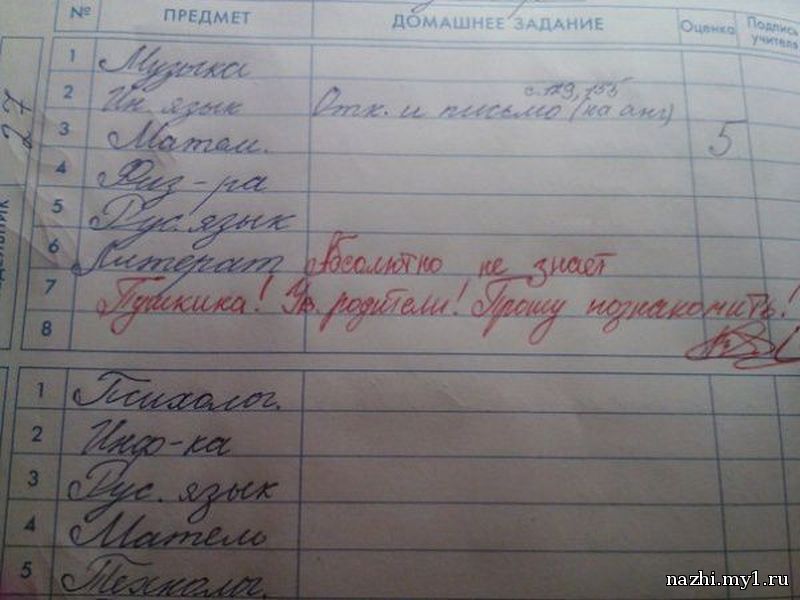 № ПРЕДМЕТ ДОМАШНЕЕ ЗАДАНИЕ Оценка Подпись учителя
1 Музыка
с. 129, 155
2 Ин. язык Отк. и письмо (на анг)
27
3 Матем. 5
4 Физ-ра
5 Рус. язык
6 Литерат Абсолютно не знает
7 Пушкина! Ув. родители! Прошу познакомить!
8
1 Психолог.
2 Инф-ка
3 Рус. язык
4 Матем
5 Технолог.
nazhi.my1.ru